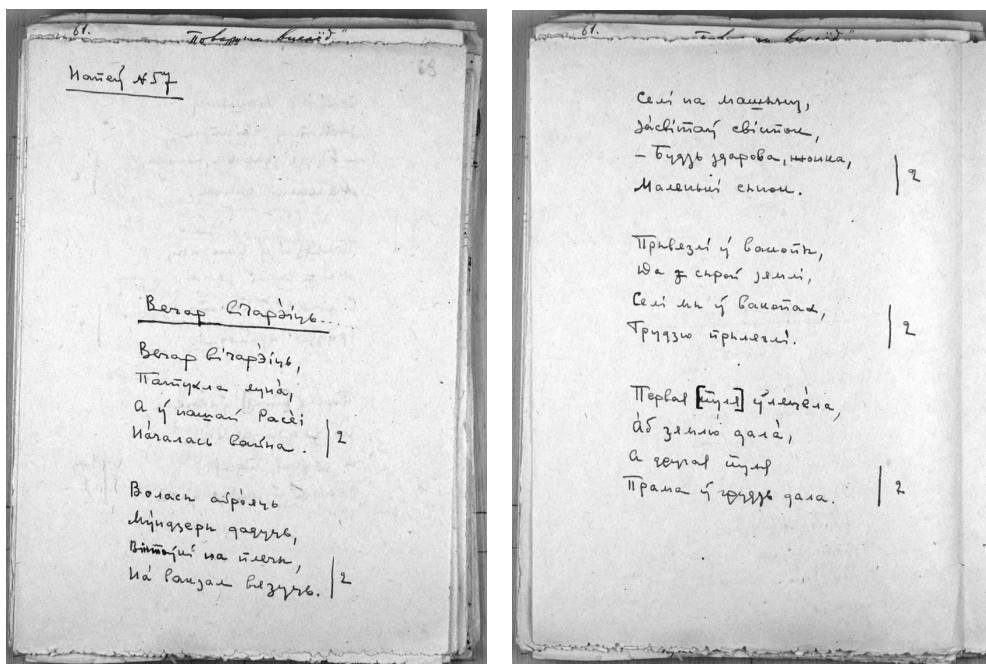 61.
Напеў № 57
Вечар вічарэіць...
Вечар вічарэіць,
Патукла луна́,
А ў нашай Расе́і
Началась вайна.
2
Воласы абрэюць
Му́ндзеры дадуць,
Вінтоўкі на плечы,
На́ ваказал вязуць.
2
61.
Селі на машыну,
За́світаў світок,
– Будзь здарова, жонка,
Маленькі сынок.
2
Прывезлі ў вакопы,
Да з сырой землі,
Селі мы ў вакопах,
Грудзю прылеглі.
2
Первая [пуля] ўляце́ла,
Аб землю́ дала́,
А другая пуля
Прама ў грудзь дала.
2